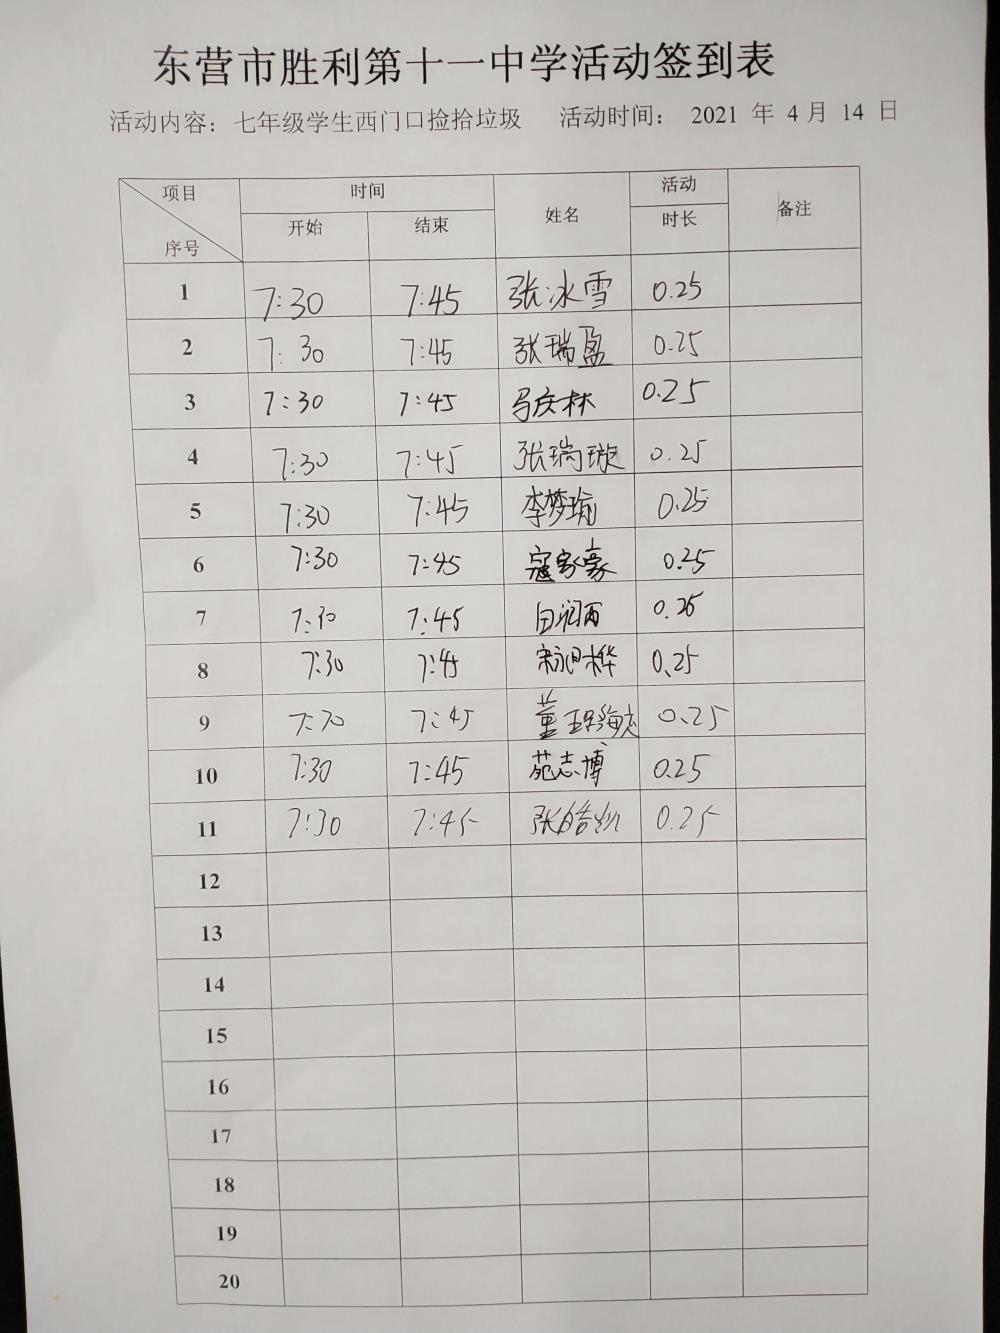 东营市胜利第十一中学活动签到表
活动内容：七年级学生西门口捡拾垃圾 活动时间： 2021 年 4月 14 日
项目 序号 时间 姓名 活动 备注
开始 结束 时长
1 7:30 7:45 张冰雪 0.25
2 7:30 7:45 张瑞盈 0.25
3 7:30 7:45 马庆林 0.25
4 7:30 7:45 张瑞璇 0.25
5 7:30 7:45 李梦瑜 0.25
6 7:30 7:45 寇家豪 0.25
7 7:30 7:45 白润西 0.25
8 7:30 7:45 宋桦 0.25
9 7:30 7:45 董 0.25
10 7:30 7:45 苑志博 0.25
11 7:30 7:45 张皓凯 0.25
12
13
14
15
16
17
18
19
20